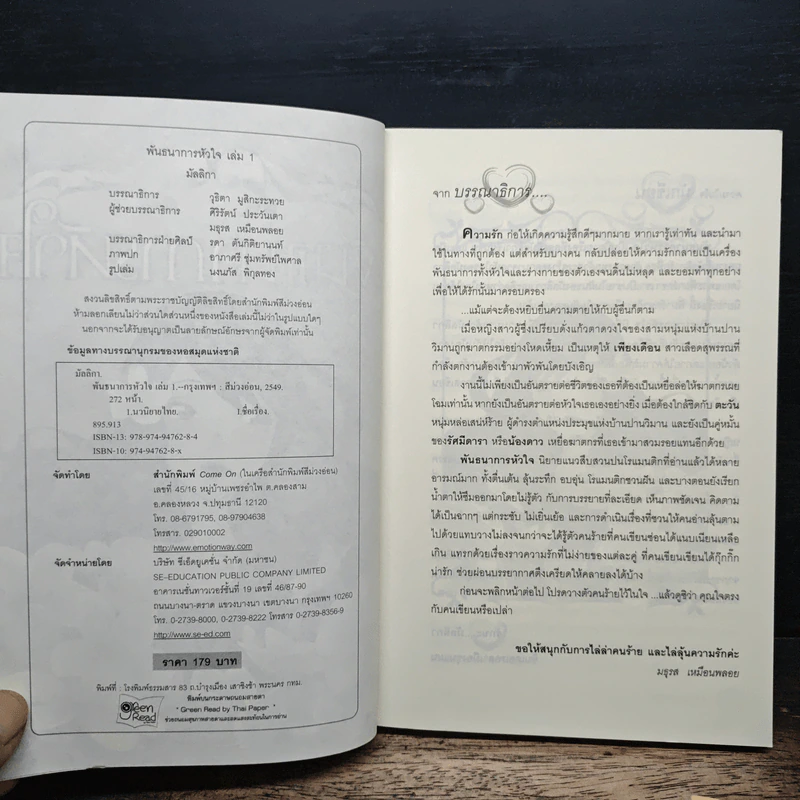 พันธนาการหัวใจ เล่ม 1
มัลลิกา
บรรณาธิการ วุธิตา มูสิกะระทวย
ผู้ช่วยบรรณาธิการ ศิริรัตน์ ประวันเตา
มธุรส เหมือนพลอย
บรรณาธิการฝ่ายศิลป์ รดา ตันกิติยานนท์
ภาพปก อาภาศรี ชุ่มทรัพย์ไพศาล
รูปเล่ม นงนภัส พิกุลทอง
สงวนลิขสิทธิ์ตามพระราชบัญญัติลิขสิทธิ์โดยสำนักพิมพ์สีม่วงอ่อน
ห้ามลอกเลียนไม่ว่าส่วนใดส่วนหนึ่งของหนังสือเล่มนี้ไม่ว่าในรูปแบบใดๆ
นอกจากจะได้รับอนุญาตเป็นลายลักษณ์อักษรจากผู้จัดพิมพ์เท่านั้น
ข้อมูลทางบรรณานุกรมของหอสมุดแห่งชาติ
มัลลิกา.
พันธนาการหัวใจ เล่ม 1.--กรุงเทพฯ : สีม่วงอ่อน, 2549.
272 หน้า.
1.นวนิยายไทย. 1.ชื่อเรื่อง.
895.913
ISBN-13: 978-974-94762-8-4
ISBN-10: 974-94762-8-x
จัดทำโดย สำนักพิมพ์ Come On (ในเครือสำนักพิมพ์สีม่วงอ่อน)
เลขที่ 45/16 หมู่บ้านเพชรอำไพ ต.คลองสาม
อ.คลองหลวง จ.ปทุมธานี 12120
โทร. 08-6791795, 08-97904638
โทรสาร. 029010002
http://www.emotionway.com
จัดจำหน่ายโดย บริษัท ซีเอ็ดยูเคชั่น จำกัด (มหาชน)
SE-EDUCATION PUBLIC COMPANY LIMITED
อาคารเนชั่นทาวเวอร์ชั้นที่ 19 เลขที่ 46/87-90
ถนนบางนา-ตราด แขวงบางนา เขตบางนา กรุงเทพฯ 10260
โทร. 0-2739-8000, 0-2739-8222 โทรสาร 0-2739-8356-9
http://www.se-ed.com
ราคา 179 บาท
พิมพ์ที่ : โรงพิมพ์ธรรมสาร 83 ถ.บำรุงเมือง เสาชิงช้า พระนคร กทม.
พิมพ์บนกระดาษถนอมสายตา
Green Read
" Green Read by Thai Paper "
ช่วยถนอมสุขภาพสายตาและลดแสงสะท้อนในการอ่าน
จาก บรรณาธิการ....
ความรัก ก่อให้เกิดความรู้สึกดีๆมากมาย หากเรารู้เท่าทัน และนำมา
ใช้ในทางที่ถูกต้อง แต่สำหรับบางคน กลับปล่อยให้ความรักกลายเป็นเครื่อง
พันธนาการทั้งหัวใจและร่างกายของตัวเองจนดิ้นไม่หลุด และยอมทำทุกอย่าง
เพื่อให้ได้รักนั้นมาครอบครอง
...แม้แต่จะต้องหยิบยื่นความตายให้กับผู้อื่นก็ตาม
เมื่อหญิงสาวผู้ซึ่งเปรียบดั่งแก้วตาดวงใจของสามหนุ่มแห่งบ้านปาน
วิมานถูกฆาตกรรมอย่างโหดเหี้ยม เป็นเหตุให้ เพียงเดือน สาวเลือดสุพรรณที่
กำลังตกงานต้องเข้ามาพัวพันโดยบังเอิญ
งานนี้ไม่เพียงเป็นอันตรายต่อชีวิตของเธอที่ต้องเป็นเหยื่อล่อให้ฆาตกรเผย
โฉมเท่านั้น หากยังเป็นอันตรายต่อหัวใจเธอเองอย่างยิ่ง เมื่อต้องใกล้ชิดกับ ตะวัน
หนุ่มหล่อเสน่ห์ร้าย ผู้ดำรงตำแหน่งประมุขแห่งบ้านปานวิมาน และยังเป็นคู่หมั้น
ของรัศมีดารา หรือน้องดาว เหยื่อฆาตกรที่เธอเข้ามาสวมรอยแทนอีกด้วย
พันธนาการหัวใจ นิยายแนวสืบสวนปนโรแมนติกที่อ่านแล้วได้หลาย
อารมณ์มาก ทั้งตื่นเต้น ลุ้นระทึก อบอุ่น โรแมนติกชวนฝัน และบางตอนยังเรียก
น้ำตาให้ซึมออกมาโดยไม่รู้ตัว กับการบรรยายที่ละเอียด เห็นภาพชัดเจน ติดตาม
ได้เป็นฉากๆ แต่กระชับ ไม่เยิ่นเย้อ และการดำเนินเรื่องที่ชวนให้คนอ่านลุ้นตาม
ไปด้วยแทบวางไม่ลงจนกว่าจะได้รู้ตัวคนร้ายที่คนเขียนซ่อนได้แนบเนียนเหลือ
เกิน แทรกด้วยเรื่องราวความรักที่ไม่ง่ายของแต่ละคู่ ที่คนเขียนเขียนได้กุ๊กกิ๊ก
น่ารัก ช่วยผ่อนบรรยากาศตึงเครียดให้คลายลงได้บ้าง
ก่อนจะพลิกหน้าต่อไป โปรดวางตัวคนร้ายไว้ในใจ ...แล้วดูซิว่า คุณใจตรง
กับคนเขียนหรือเปล่า
ขอให้สนุกกับการไล่ล่าคนร้าย และไล่ลุ้นความรักค่ะ
มธุรส เหมือนพลอย